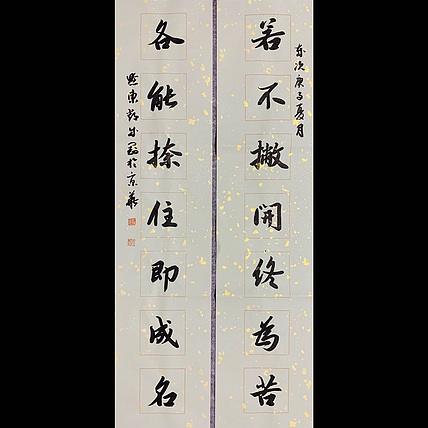 歲次庚子夏月
若不撇開終為苦
各能捺住即成名
黔東 於京華